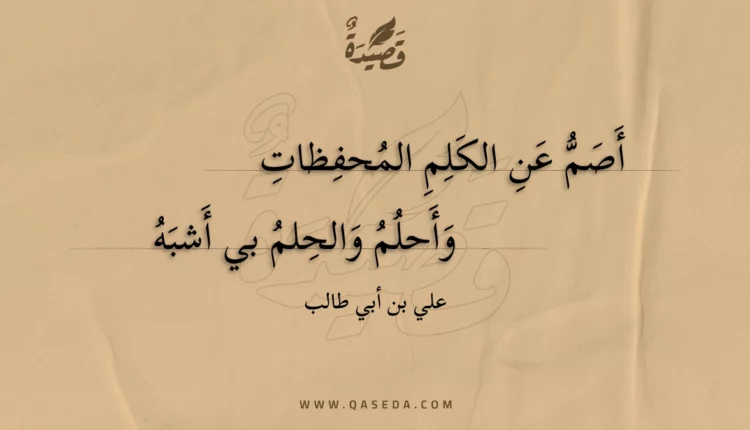 قَصِيدَةٌ
أَصَمُّ عَنِ الكَلِمِ المُحفِظاتِ
وَأَحلُمُ وَالحِلمُ بي أَشبَهُ
علي بن أبي طالب
WWW.QASEDA.COM